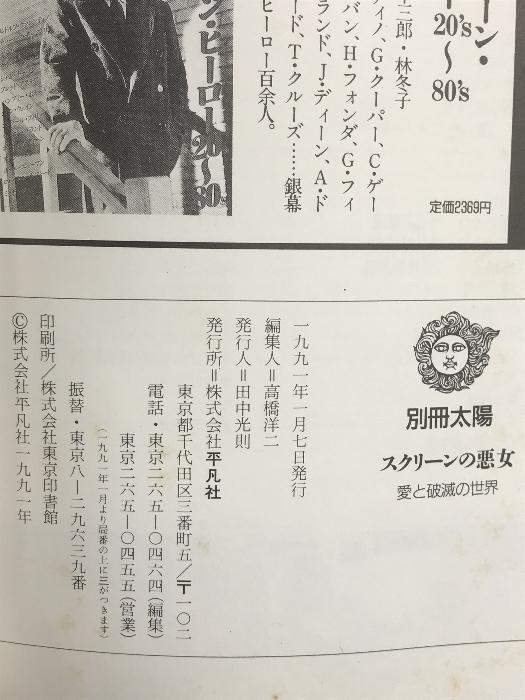 ーン・
20's
〜
80's
三郎・林冬子
ィノ、G・クーパー、C・ゲー
バン、H・フォンダ、G・フィ
ランド、J・ディーン、A・ド
ード、T・クルーズ……銀幕
ヒーロー百余人。
定価2369円
ン・ヒーロー20's〜80's
別冊太陽
スクリーンの悪女
愛と破滅の世界
一九九一年一月七日発行
編集人＝高橋洋二
発行人＝田中光則
発行所＝株式会社平凡社
東京都千代田区三番町五／〒一〇二
電話・東京二六五―〇四六四(編集)
東京二六五―〇四五五(営業)
(一九九一年一月より局番の上に三がつきます)
振替・東京八―二九六三九番
印刷所／株式会社東京印書館
©株式会社平凡社一九九一年